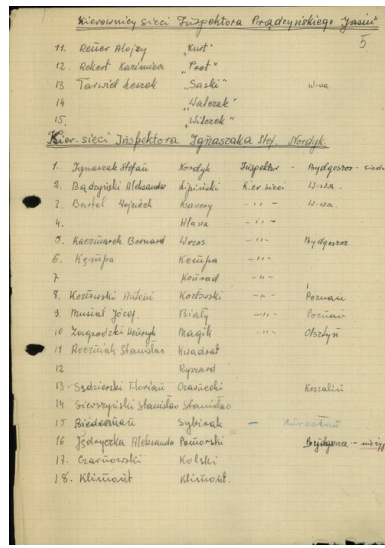 Kierownicy sieci Inspektora Prądzyńskiego "Jasiu"
5
11. Reuer Alojzy "Kurt"
12. Rekert Kazimierz "Post"
13 Tarwid Leszek "Saski" W-wa
14 "Walczak"
15. "Wilczek"
Kier. sieci Inspektora Ignaszaka Stef. Nordyk
1. Ignaszak Stefan Nordyk Inspektor - Bydgoszcz -
2. Bądzyński Aleksander Lipiński Kier sieci W-wa.
3. Bartel Wojciech Ksawery - " - W-wa.
4. - " -
5. Kaczmarek Bernard Wrzos - " - Bydgoszcz
6. Kempa Kempa - " -
7 Konrad - " -
8. Kozłowski Antoni Kozłowski - " - Poznań
9. Musiał Józef Biały - " - Poznań
10 Zagrodzki Henryk Magik - " - Olsztyn
11 Stanisław Kwadrat
12 Ryszard
13 - Sędzierski Florian Czarnecki Koszalin
14 Stanisław Stanisław
15 Biederman Sybirak -
16 Jędryczka Aleksander Pomorski Bydgoszcz -
17. Czarnowski Kolski
18. Klimont Klimont.